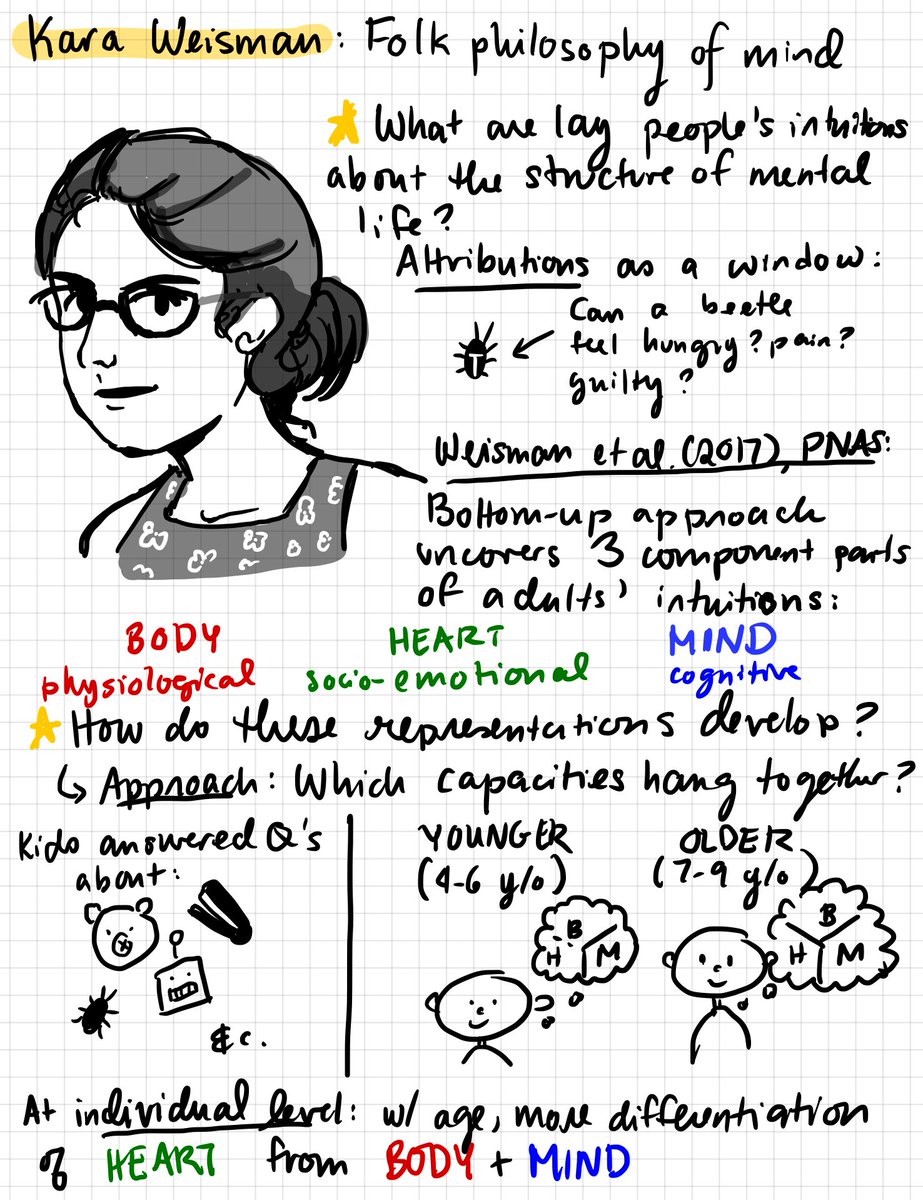 Kara Weisman: Folk philosophy of mind
What are lay people's intuitions
about the structure of mental
life?
Attributions as a window:
Can a beetle
feel hungry? pain?
guilty?
Weisman et al. (2017), PNAS:
Bottom-up approach
uncovers 3 component parts
of adults' intuitions:
BODY HEART MIND
physiological socio-emotional cognitive
How do these representations develop?
↳ Approach: Which capacities hang together?
Kids answered Q's
about:
&c.
YOUNGER
(4-6 y/o)
B
H M
OLDER
(7-9 y/o)
B
H M
At individual level: w/ age, more differentiation
of HEART from BODY + MIND